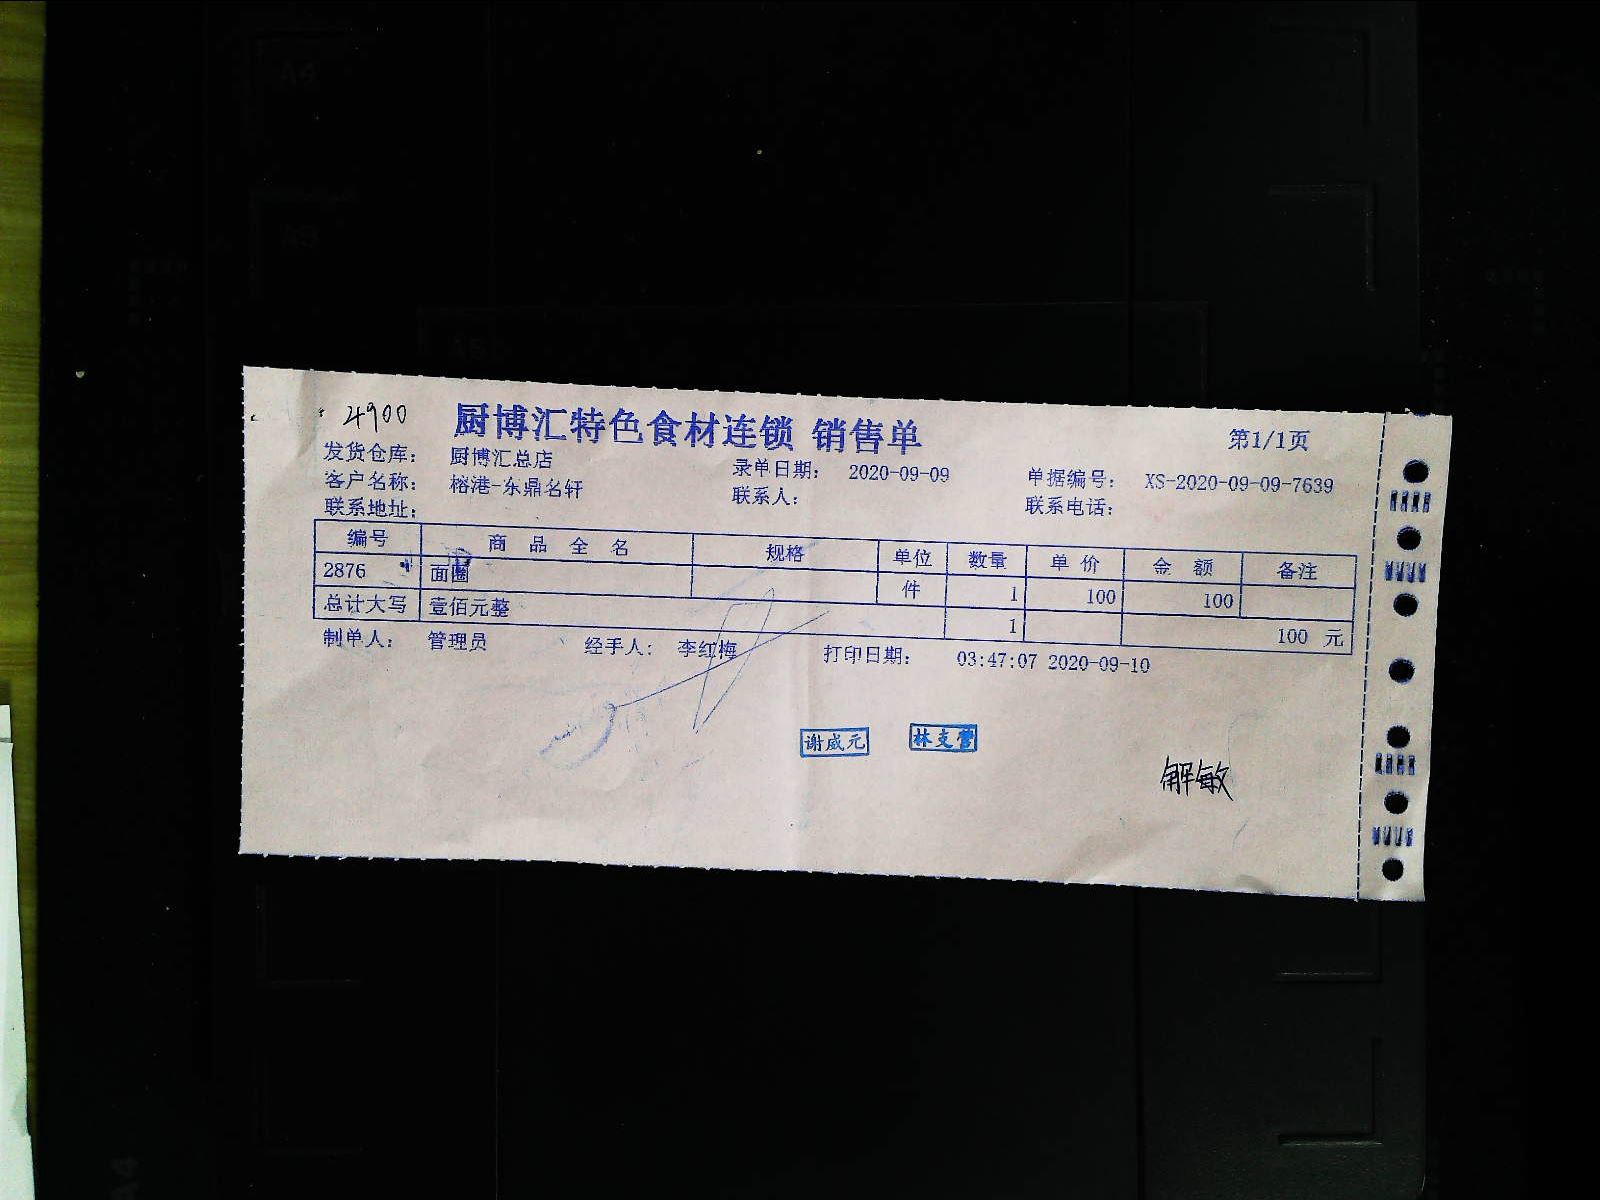 4900
厨博汇特色食材连锁 销售单
第1/1页
发货仓库： 厨博汇总店 录单日期： 2020-09-09 单据编号： XS-2020-09-09-7639
客户名称： 榕港-东鼎名轩 联系人： 联系电话：
联系地址：
编号 商品全名 规格 单位 数量 单价 金额 备注
2876 面圈 件 1 100 100
总计大写 壹佰元整 1 100 元
制单人： 管理员 经手人： 李红梅 打印日期： 03:47:07 2020-09-10
谢威元 林支营
解敏